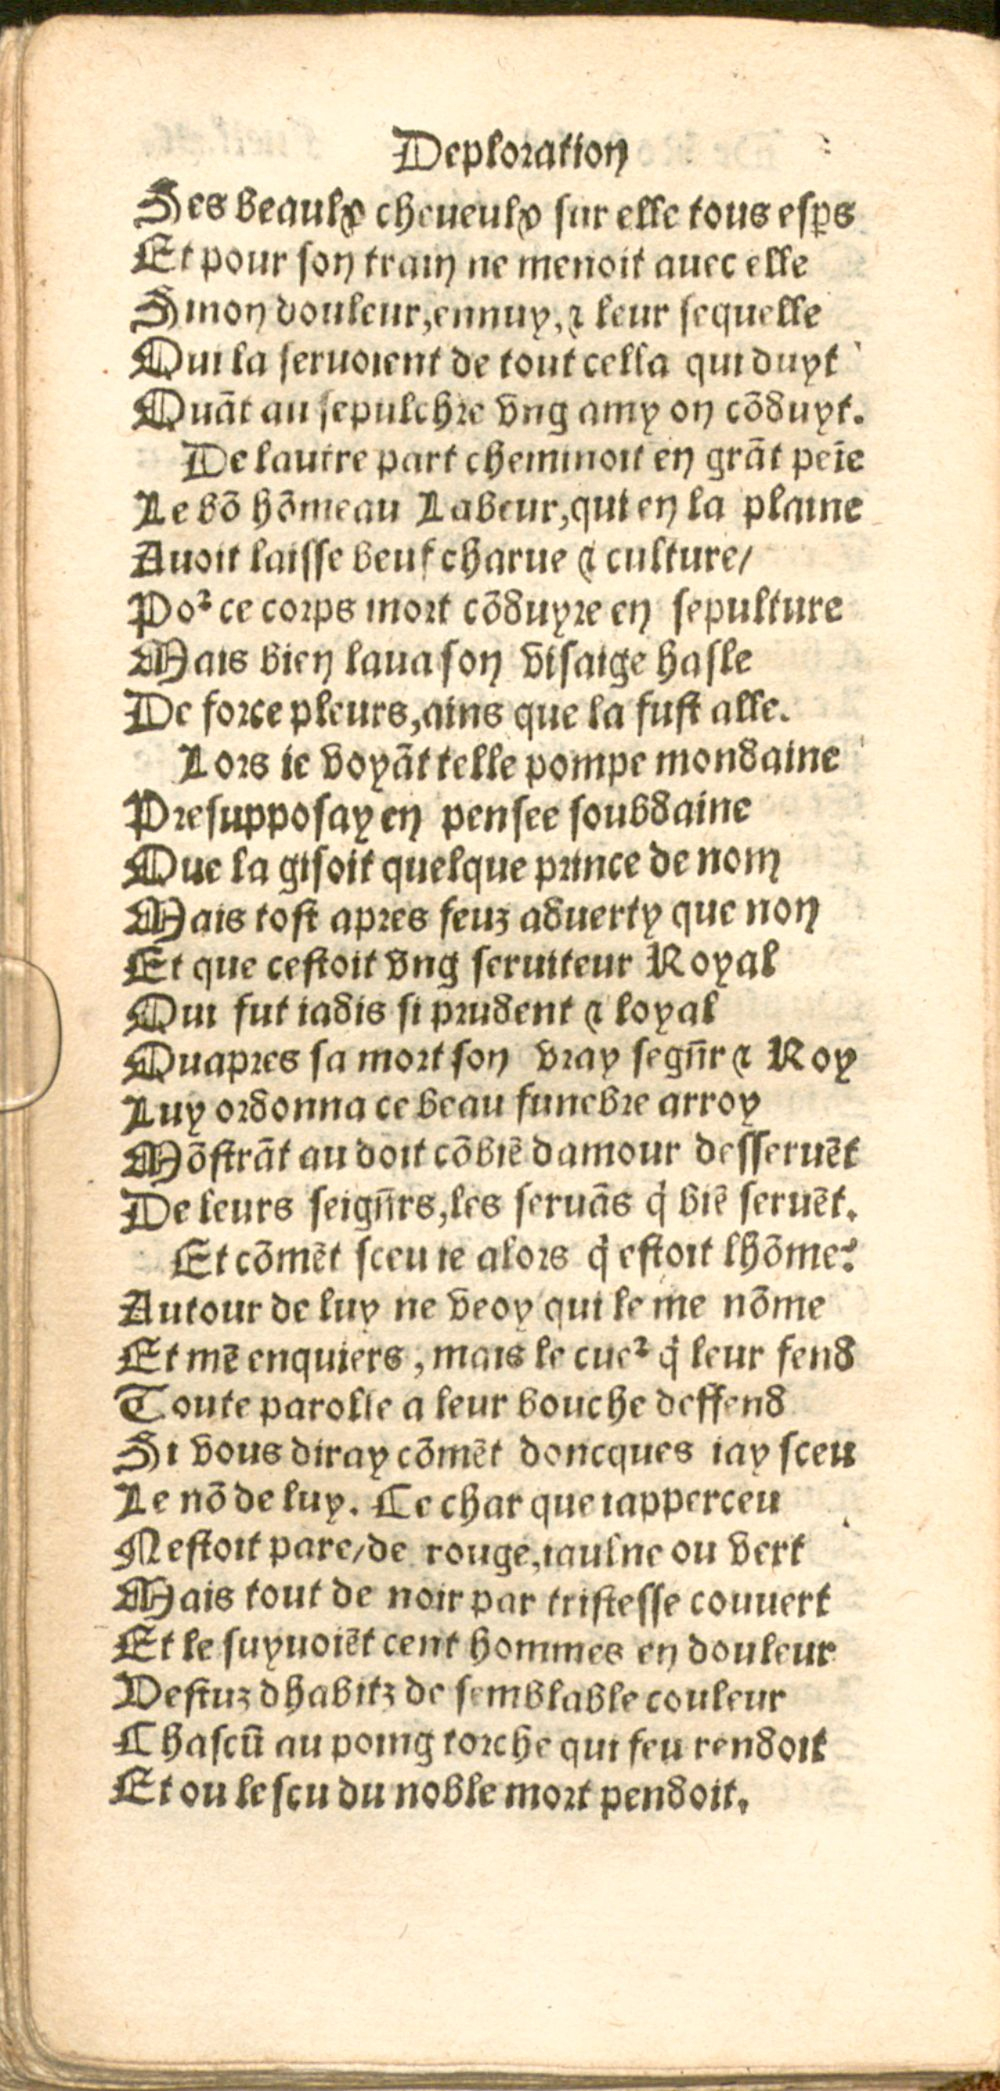 Deploration
Ses beaulx cheueulx sur elle tous esp̱s
Et pour son train ne menoit auec elle
Sinon douleur,ennuy,⁊ leur sequelle
Qui la seruoient de tout cella qui duyt
Quãt au sepulchre vng amy on cõduyt.
De lautre part cheminoit en grãt peĩe
Le bõ hõmeau Labeur,qui en la plaine
Auoit laisse beuf charue ⁊ culture/
Poꝛ ce corps mort cõduyre en sepulture
Mais bien laua son visaige hasle
De force pleurs,ains que la fust alle.
Lors ie voyãt telle pompe mondaine
Presupposay en pensee soubdaine
Que la gisoit quelque prince de nom
Mais tost apres feuz aduerty que non
Et que cestoit vng seruiteur Royal
Qui fut iadis si prudent ⁊ loyal
Quapres sa mort son vray segñr ⁊ Roy
Luy ordonna ce beau funebre arroy
Mõstrãt au doit cõbiẽ damour desseruẽt
De leurs seigñrs,les seruãs q̇ biẽ seruẽt.
Et cõmẽt sceu ie alors q̇ estoit lhõme?
Autour de luy ne veoy qui le me nõme
Et mẽ enquiers, mais le cueꝛ q̇ leur fend
Toute parolle a leur bouche deffend
Si vous diray cõmẽt doncques iay sceu
Le nõ de luy. Ce char que iapperceu
Nestoit pare/de rouge,iaulne ou vert
Mais tout de noir par tristesse couuert
Et le suyuoiẽt cent hommes en douleur
Vestuz dhabitz de semblable couleur
Chascũ au poing torche qui feu rendoit
Et ou lescu du noble mort pendoit.